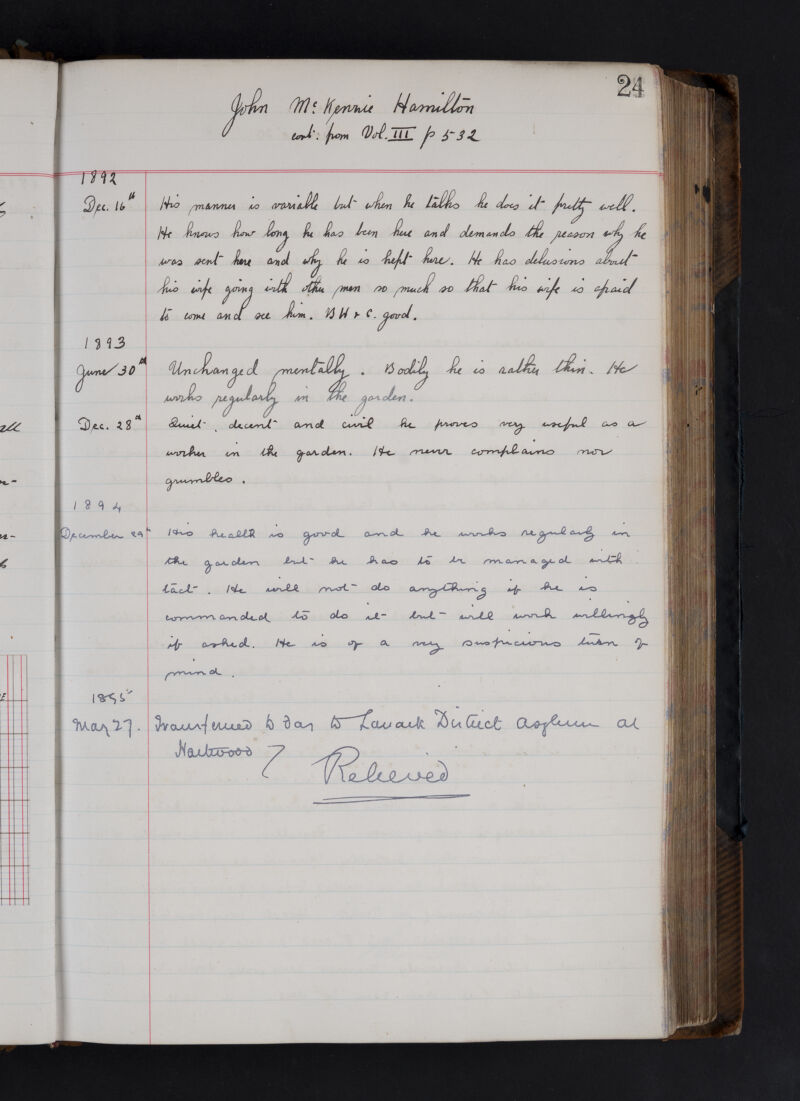 24
John Mc Kennie Hamilton
cont. from Vol. III p 532
1892
Dec. 16th His manner is variable but when he talks he does it pretty well.
He knows how long he has been here and demands the reason why he
was sent here and why he is kept here. He has delusions about
his wife going with other men so much so that his wife is afraid
to come and see him. B H & C. good.
1893
June 30th Unchanged mentally. Bodily he is rather thin. He
works regularly in the garden.
Dec. 28th Quiet, decent and civil he proves very useful as a
worker in the garden. He never complains nor
grumbles.
1894
December 29th His health is good and he works regularly in
the garden but he has to be managed with
tact. He will not do anything if he is
commanded to do it but will work willingly
if asked. He is of a very suspicious turn of
mind.
1895
May 27. Transferred to day to Lanark District Asylum at
Hartwood
Relieved